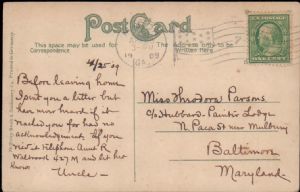 Post Card
This space may be used for
Correspondence
The address only to be
Written Here
GA.
ONE CENT
4/25 09
Before leaving home
I sent you a letter but
have never heard if it
reached you for had no
acknowledgement. If you
rec'd it telephone Aunt R
427 M and let her
know
Uncle
Miss Theodora Parsons
c/o Hubbard
N. Paca St near Mulberry
Baltimore
Maryland